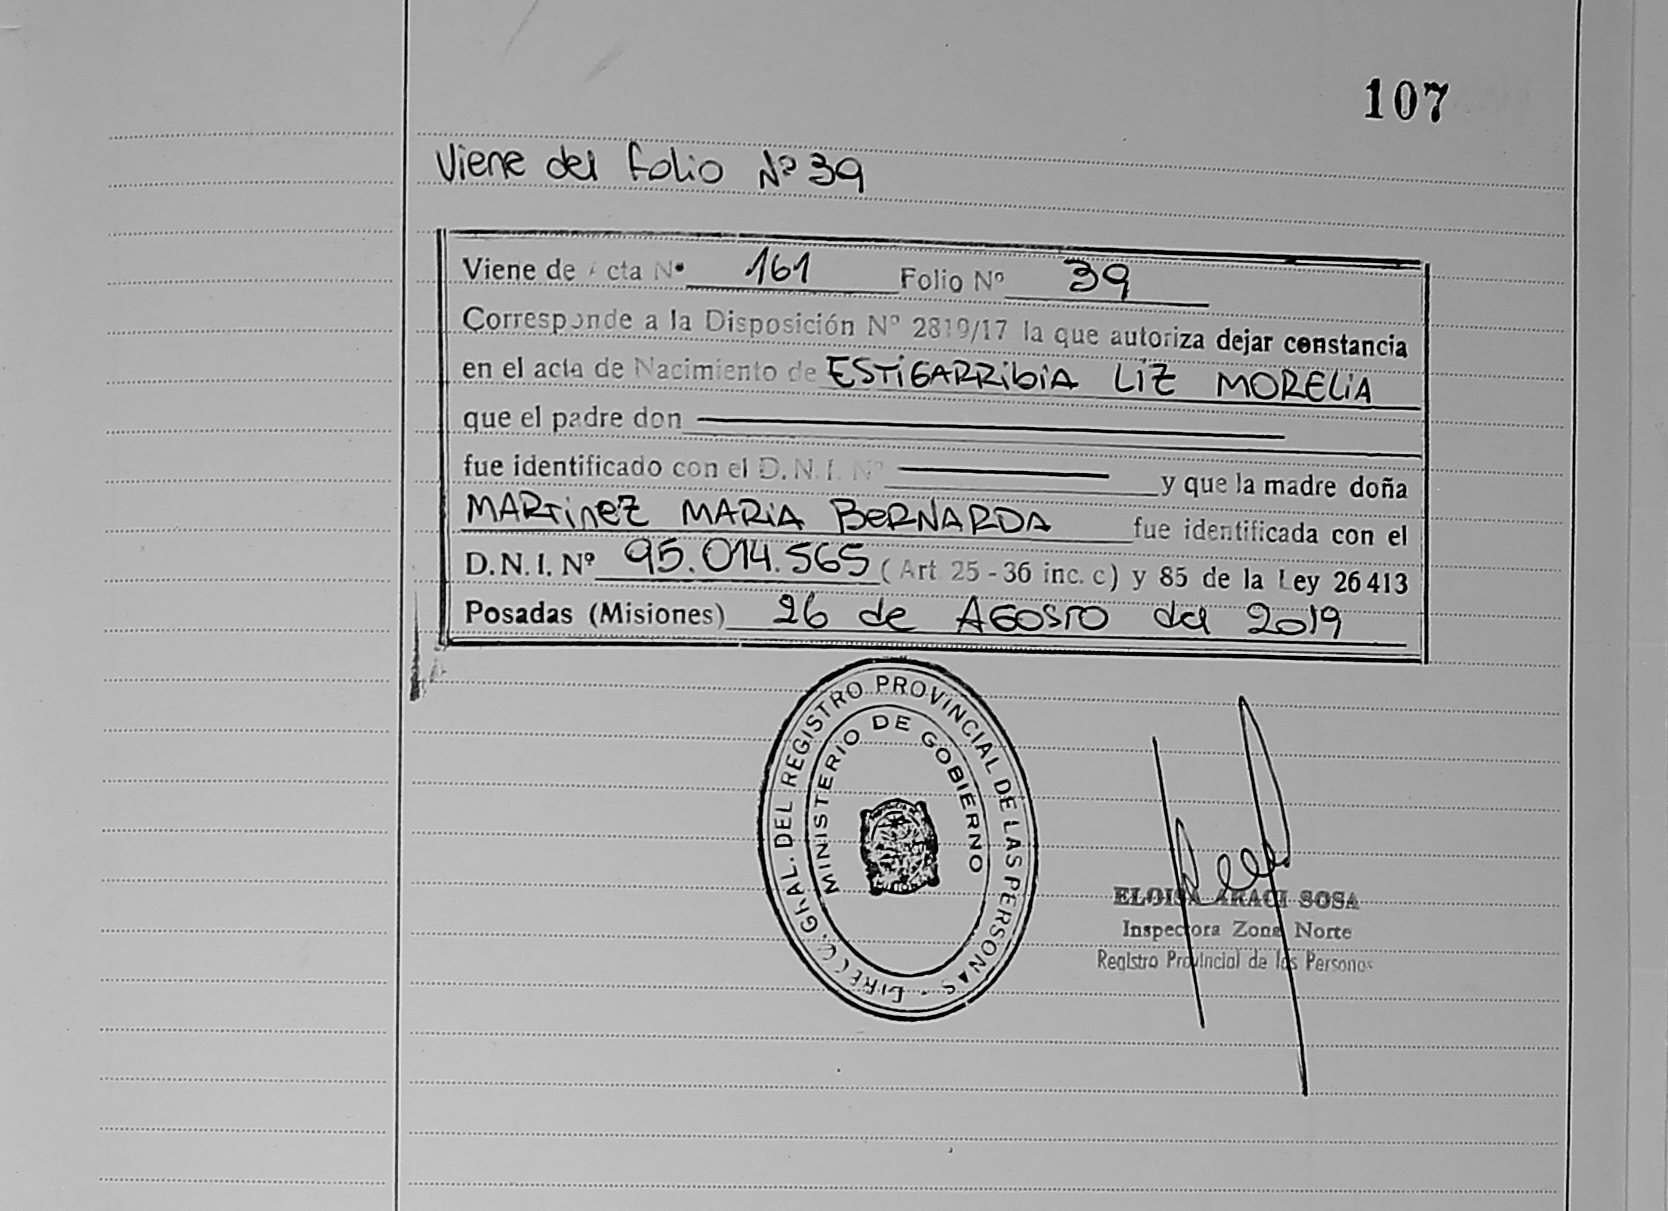 107
Viene del folio Nº 39
Viene de Acta Nº 161 Folio Nº 39
Corresponde a la Disposición Nº 2819/17 la que autoriza dejar constancia
en el acta de Nacimiento de ESTIGARRIBIA LIZ MORELIA
que el padre don
fue identificado con el D.N.I. Nº y que la madre doña
MARTINEZ MARIA BERNARDA fue identificada con el
D.N.I. Nº 95.014.565 (Art 25-36 inc. c) y 85 de la Ley 26413
Posadas (Misiones) 26 de AGOSTO del 2019
DIRECC. GRAL. DEL REGISTRO PROVINCIAL DE LAS PERSONAS
MINISTERIO DE GOBIERNO
ELOISA ARACI SOSA
Inspectora Zona Norte
Registro Provincial de las Personas